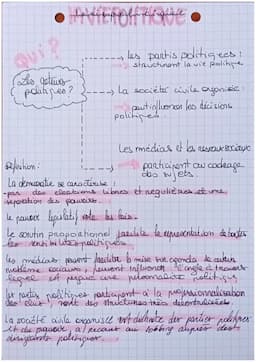 LA VIE POLITIQUE
Qui ?
Les acteurs
politiques ?
→ les partis politiques :
→ structurent la vie politique
→ La société civile organisée :
→ peut influencer les décisions
politiques.
Les médias et les réseaux sociaux
→ participent au cadrage
des sujets.
Définition :
La démocratie se caractérise :
- par des élections libres et régulières et une
séparation des pouvoirs.
Le pouvoir législatif vote les lois.
Le scrutin proportionnel facilite la représentation de toutes
les sensibilités politiques.
Les médias peuvent la mise sur agenda de certains
problèmes sociaux, peuvent influencer l'angle à travers
lequel est perçu une personnalité politique
Les partis politiques participent à la professionnalisation
des élus, sont des structures très
La société civile organisée est distincte des partis politiques
et du pouvoir, a recourt au lobbying auprès des
dirigeants politiques.